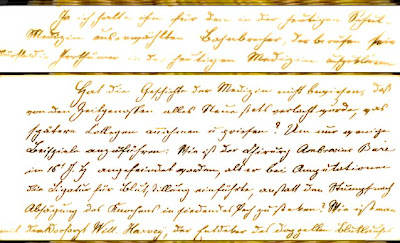 Ja ich halte ihn für den in der heutigen Schul-
Medizin auserwählten Bahnbrecher, der berufen sein
Irrtümer in der heutigen Medizin
Hat die Geschichte der Medizin nicht bewiesen, daß
von den Zeitgenossen alles Neue stets verlacht wurde, was
spätere Kollegen annahmen u priesen? Um nur wenige
Beispiele anzuführen: Wie ist der Chirurg Ambroise Paré
im 16t J. H. angefeindet worden, als er bei Amputationen
die Ligatur für Blutstillung einführte anstatt den Stumpf nach
Absägung des Knochens in siedendes Pech zu stecken? Wie ist man
mit Will. Harvey, der Entdecker des doppelten Blutkreis-